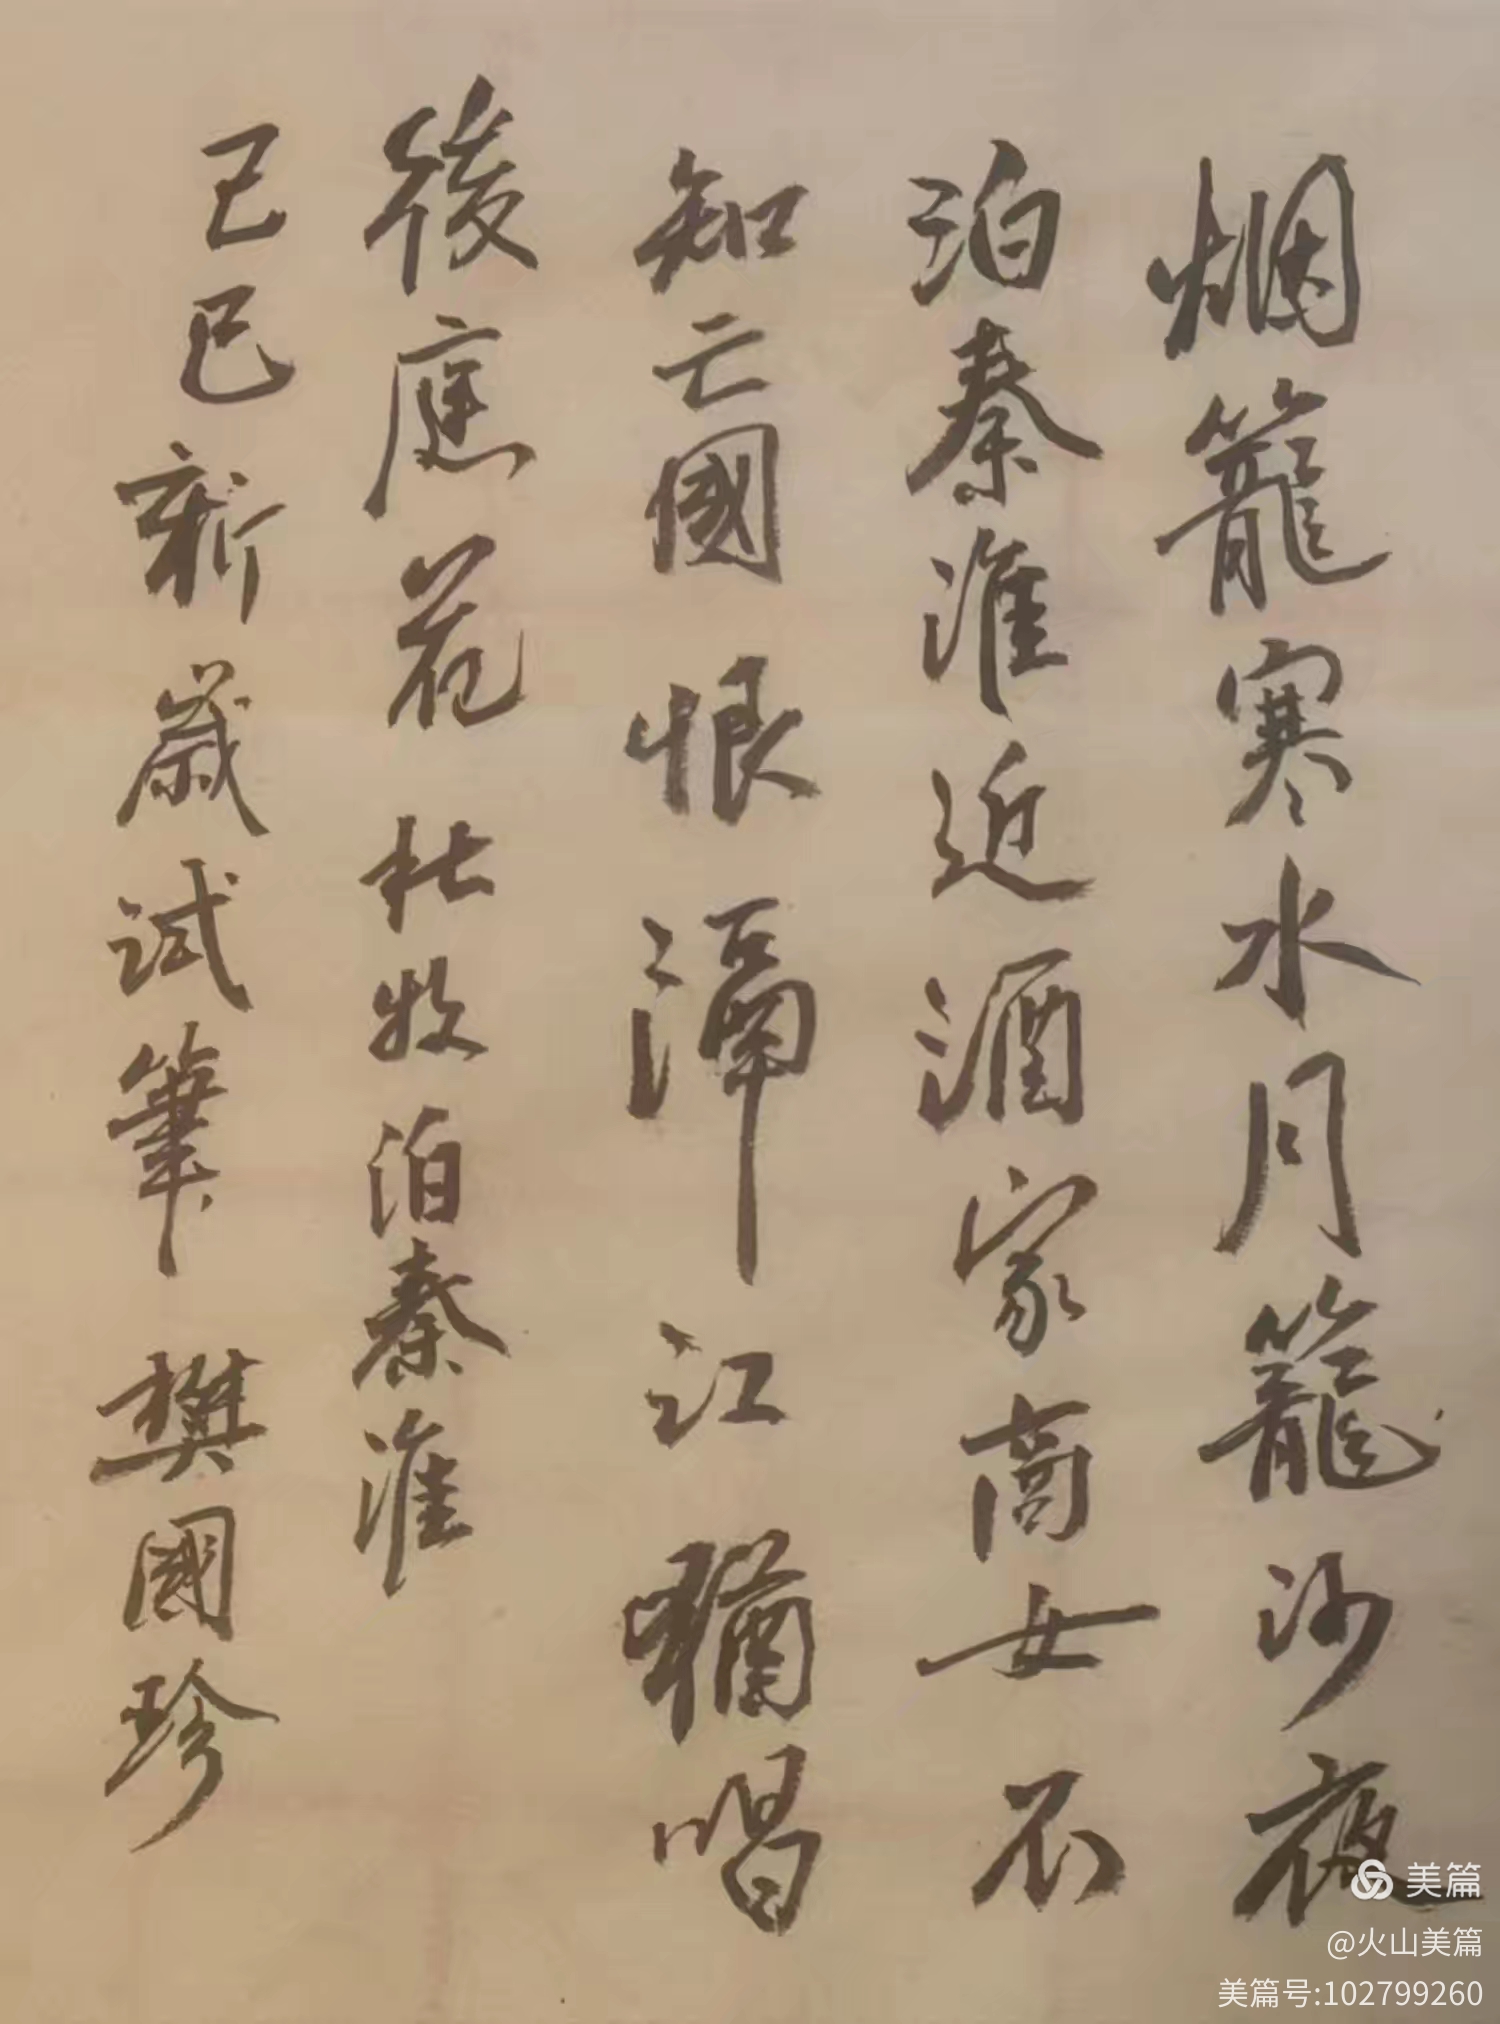 烟籠寒水月籠沙夜
泊秦淮近酒家商女不
知亡國恨滆江猶唱
後庭花 杜牧泊秦淮
己巳新歲試筆 樊國珍
美篇
@火山美篇
美篇号:102799260